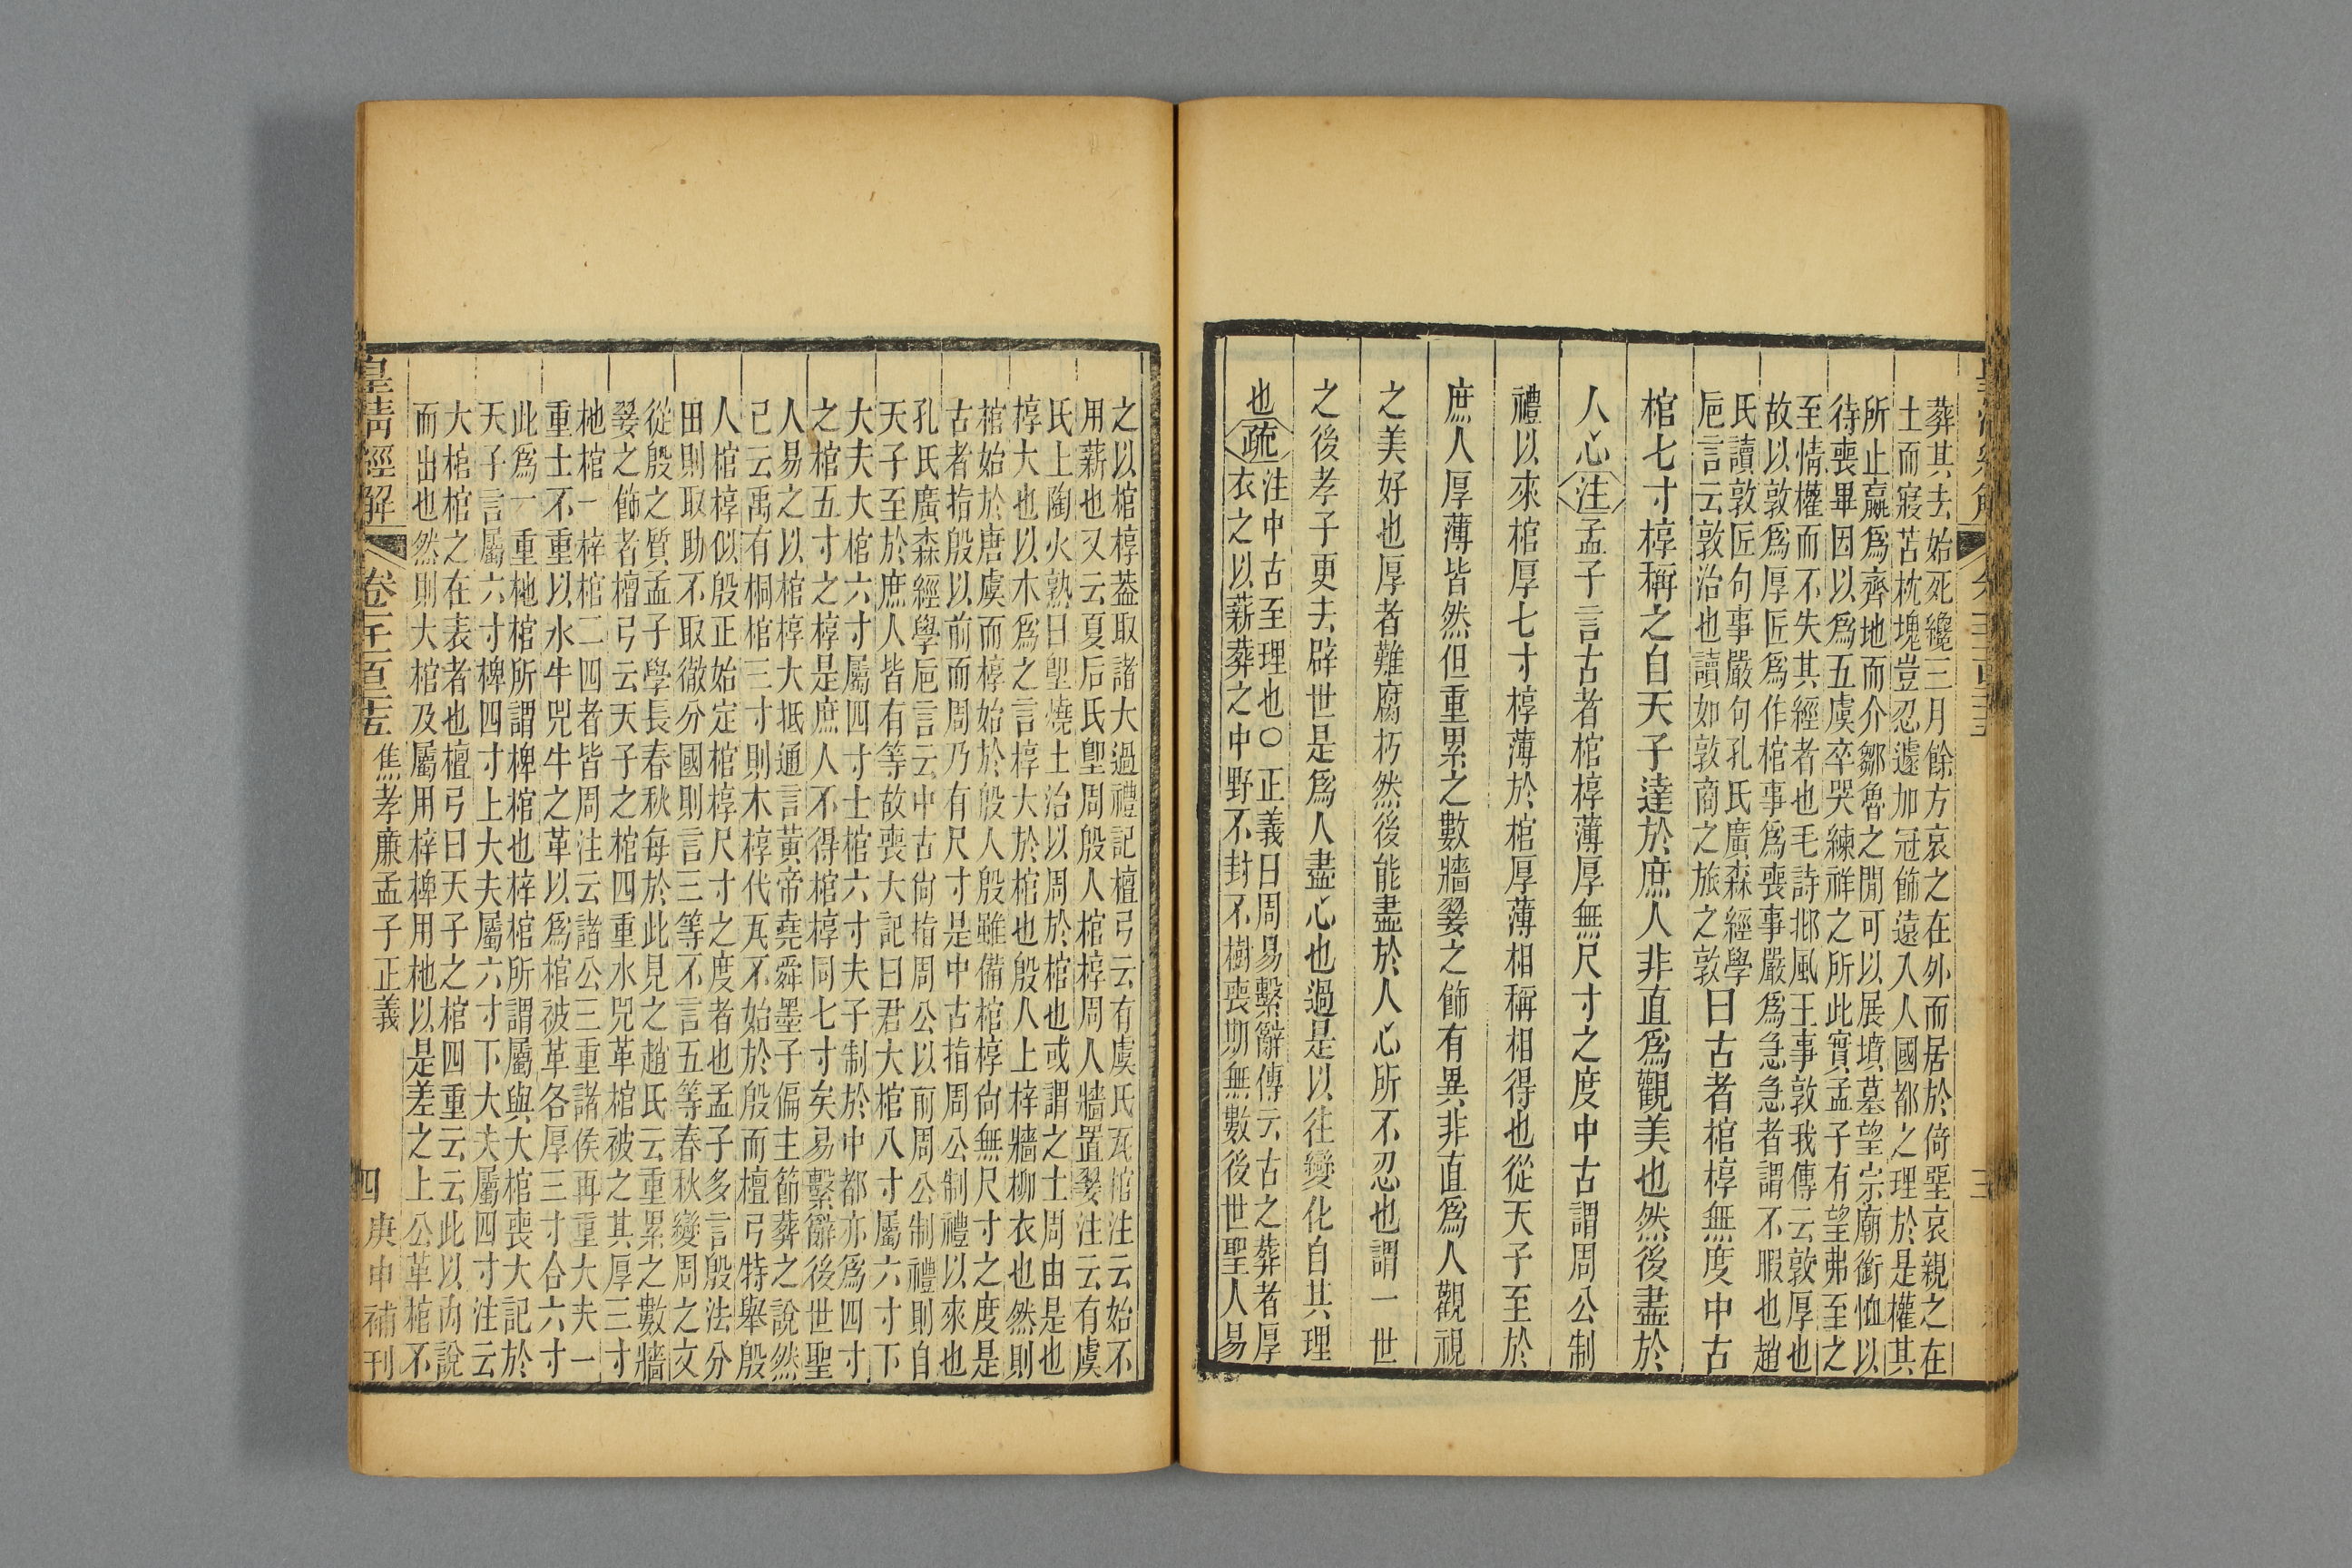 葬其去始死纔三月餘方哀之在外而居於倚堊哀親之在
土而寢苫枕塊豈忍遽加冠飾遠入人國都之理於是權其
所止嬴爲齊地而介鄒魯之閒可以展墳墓望宗廟銜恤以
待喪畢因以爲五虞卒哭練祥之所此實孟子有望弗至之
至情權而不失其經者也毛詩邶風王事敦我傳云敦厚也
故以敦爲厚匠爲作棺事爲喪事嚴爲急急者謂不暇也趙
氏讀敦匠句事嚴句孔氏廣森經學
卮言云敦治也讀如敦商之旅之敦
曰古者棺椁無度中古
棺七寸椁稱之自天子達於庶人非直爲觀美也然後盡於
人心注孟子言古者棺椁薄厚無尺寸之度中古謂周公制
禮以來棺厚七寸椁薄於棺厚薄相稱相得也從天子至於
庶人厚薄皆然但重累之數牆翣之飾有異非直爲人觀視
之美好也厚者難腐朽然後能盡於人心所不忍也謂一世
之後孝子更去辟世是爲人盡心也過是以往變化自其理
也疏
注中古至理也○正義曰周易繫辭傳云古之葬者厚
衣之以薪葬之中野不封不樹喪期無數後世聖人易
之以棺椁葢取諸大過禮記檀弓云有虞氏瓦棺注云始不
用薪也又云夏后氏堲周殷人棺椁周人牆置翣注云有虞
氏上陶火熟曰堲燒土冶以周於棺也或謂之土周由是也
椁大也以木爲之言椁大於棺也殷人上梓牆柳衣也然則
棺始於唐虞而椁始於殷人殷雖備棺椁尙無尺寸之度是
古者指殷以前而周乃有尺寸是中古指周公制禮以來也
孔氏廣森經學卮言云中古尙指周公以前周公制禮則自
天子至於庶人皆有等故喪大記曰君大棺八寸屬六寸下
大夫大棺六寸屬四寸士棺六寸夫子制於中都亦爲四寸
之棺五寸之椁是庶人不得棺椁同七寸矣易繫辭後世聖
人易之以棺椁大抵通言黃帝堯舜墨子偏主節葬之說然
已云禹有桐棺三寸則木椁代瓦不始於殷而檀弓特舉殷
人棺椁似殷正始定棺椁尺寸之度者也孟子多言殷法分
田則取助不取徹分國則言三等不言五等春秋變周之文
從殷之質孟子學長春秋每於此見之趙氏云重累之數牆
翣之飾者檀弓云天子之棺四重水兕革棺被之其厚三寸
杝棺一梓棺二四者皆周注云諸公三重諸侯再重大夫一
重士不重以水牛兕牛之革以爲棺被革各厚三寸合六寸
此爲一重杝棺所謂椑棺也梓棺所謂屬與大棺喪大記於
天子言屬六寸椑四寸上大夫屬六寸下大夫屬四寸注云
大棺棺之在表者也檀弓曰天子之棺四重云云此以內說
而出也然則大棺及屬用梓椑用杝以是差之上公革棺不
皇淸經解 卷一千一百二十五 焦孝廉孟子正義 四 庚申補刊